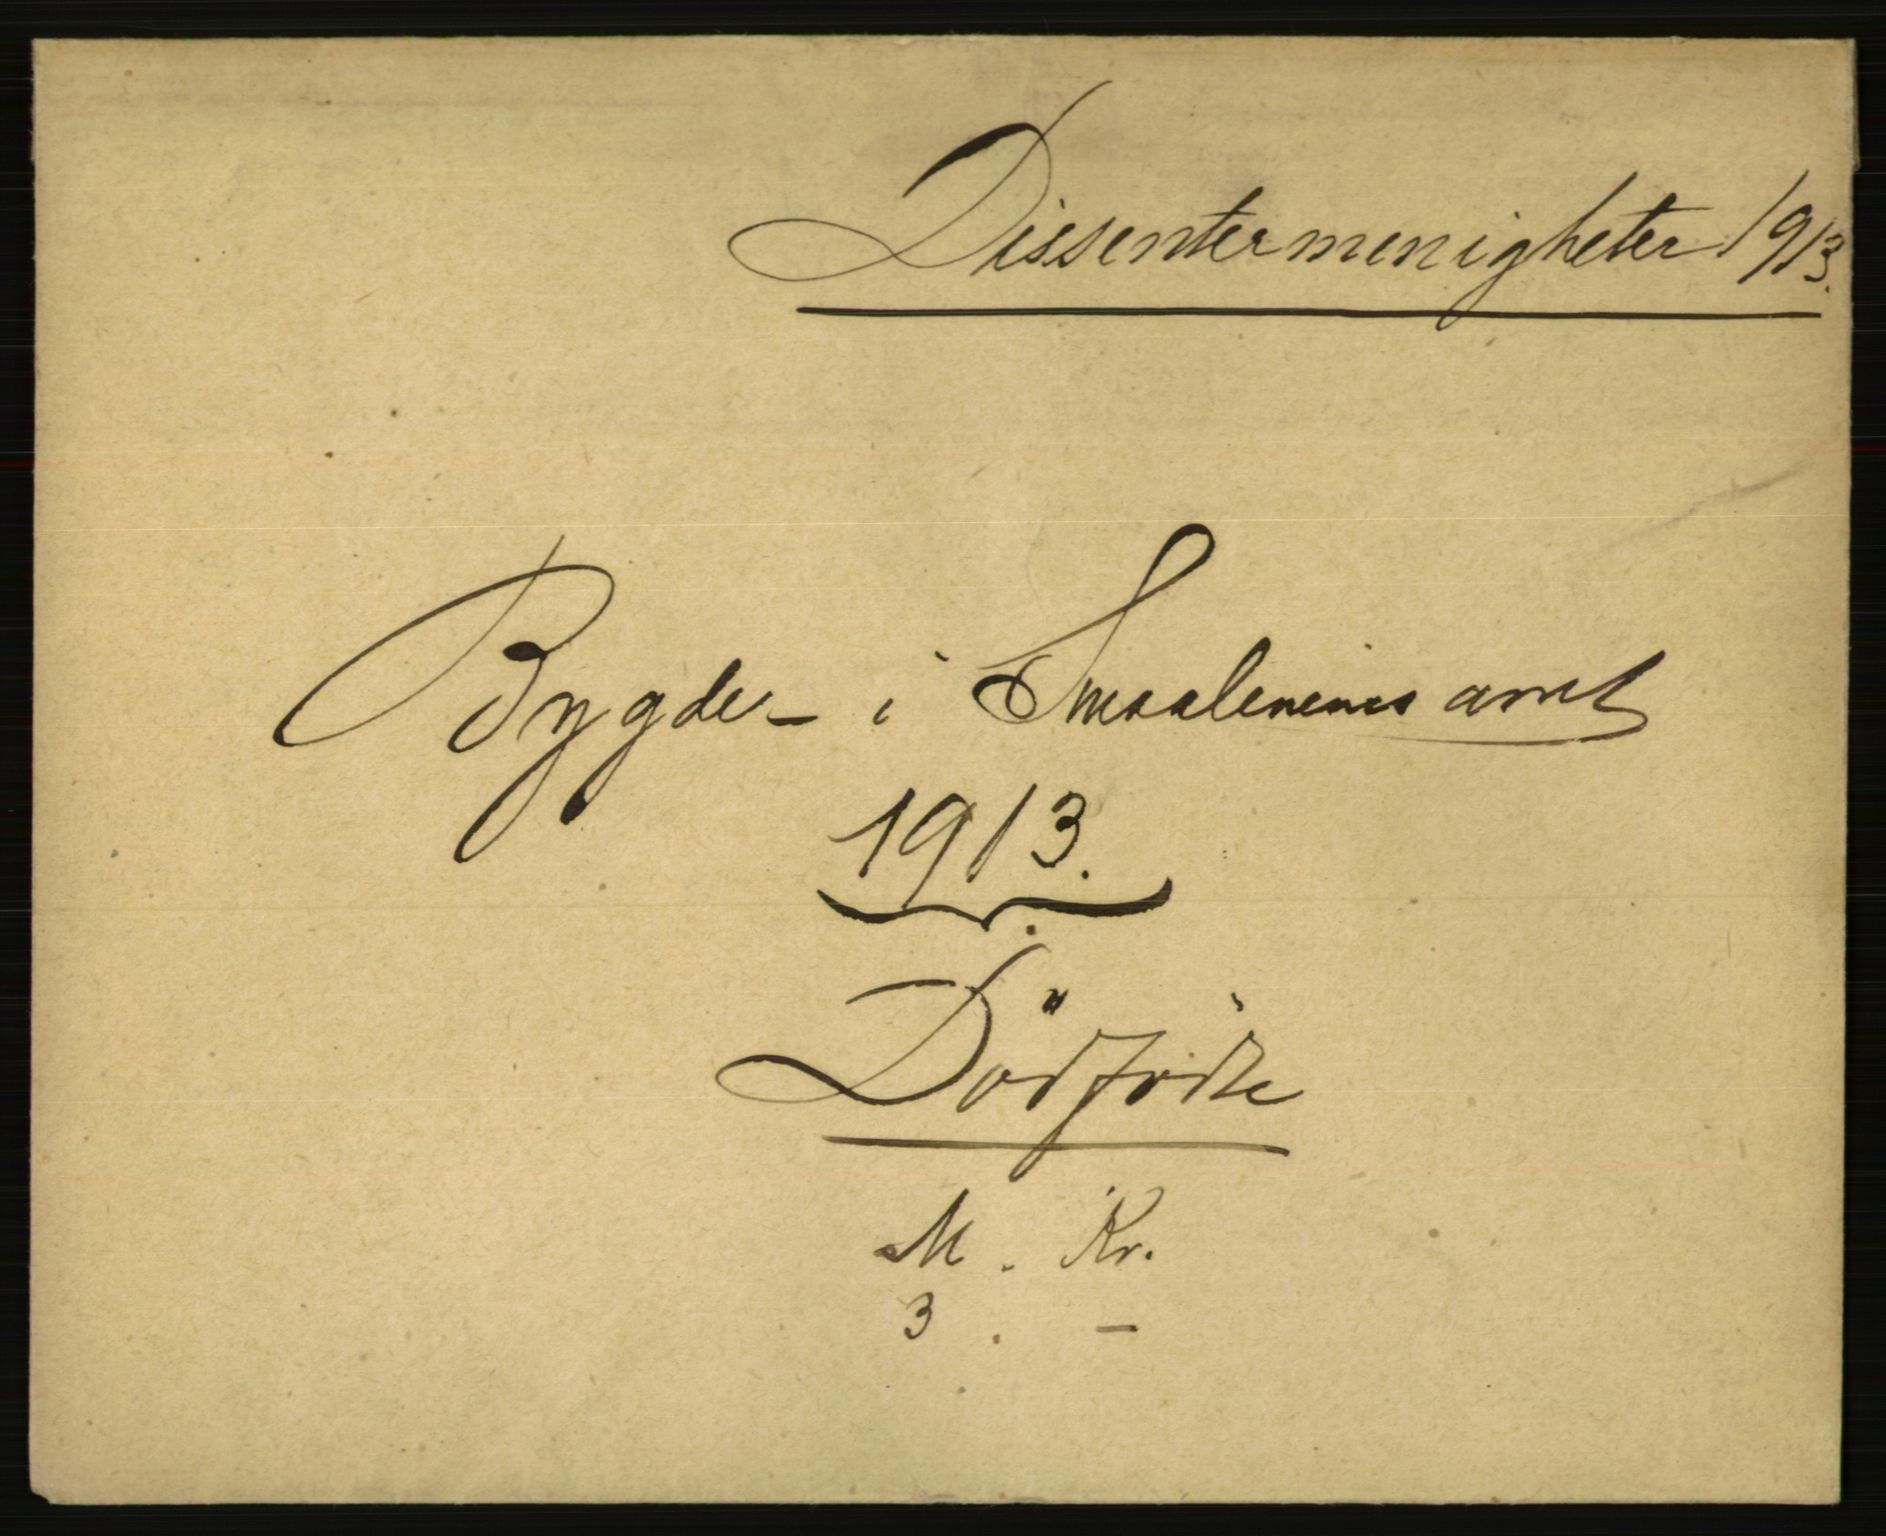 Dissentermenigheter 1913.
Bygder i Smaalenenes amt
1913.
Dödfödte
M. Kr.
3 . –